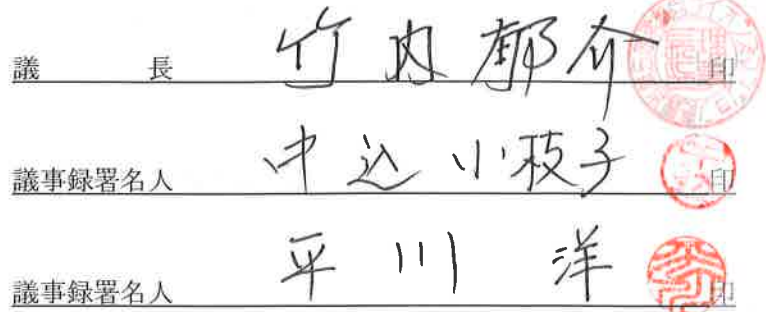 議長 竹内郁介 印
議事録署名人 中込小枝子 印
議事録署名人 平川洋 印